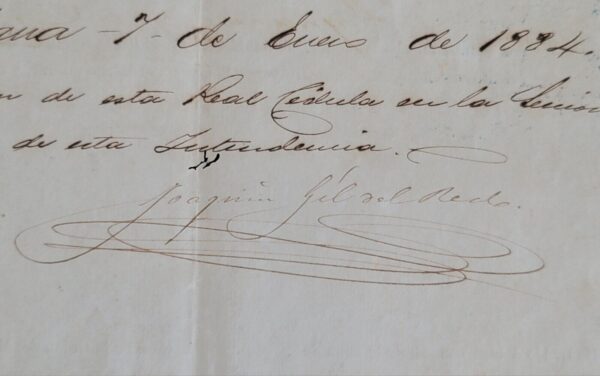 7 de Enero de 1884.
de esta Real Cédula en la
de esta Intendencia.
Joaquín Gil del